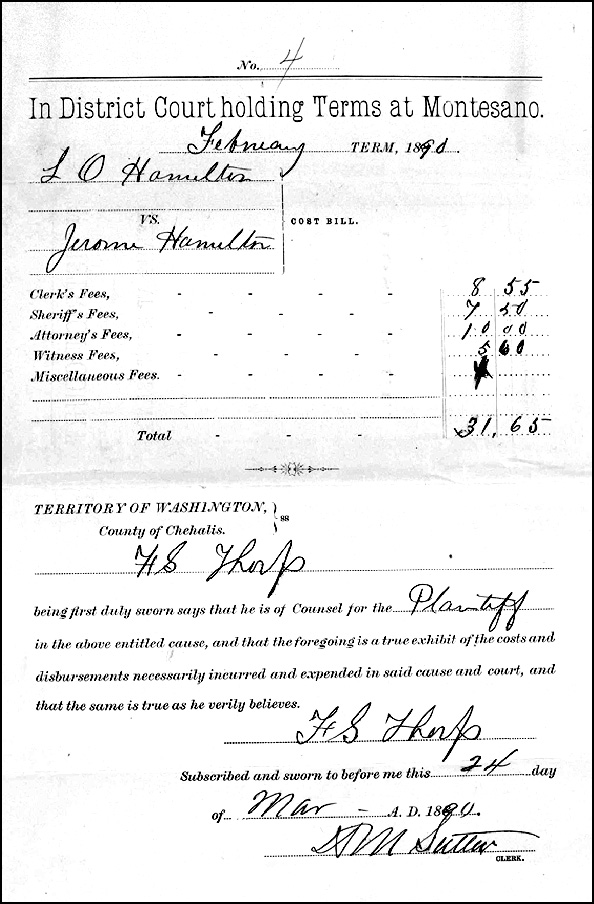 No. 4
In District Court holding Terms at Montesano.
February TERM, 1890.
L O Hamilton
VS.
COST BILL.
Jerome Hamilton
Clerk's Fees, - - - - 8 55
Sheriff's Fees, - - - - 7 50
Attorney's Fees, - - - - 10 00
Witness Fees, - - - - 5 60
Miscellaneous Fees. - - - -
Total - - - 31,65
TERRITORY OF WASHINGTON, } ss
County of Chehalis.
FS Thorp
being first duly sworn says that he is of Counsel for the Plaintiff
in the above entitled cause, and that the foregoing is a true exhibit of the costs and
disbursements necessarily incurred and expended in said cause and court, and
that the same is true as he verily believes.
FS Thorp
Subscribed and sworn to before me this 24 day
of Mar - A. D. 1890.
CLERK.